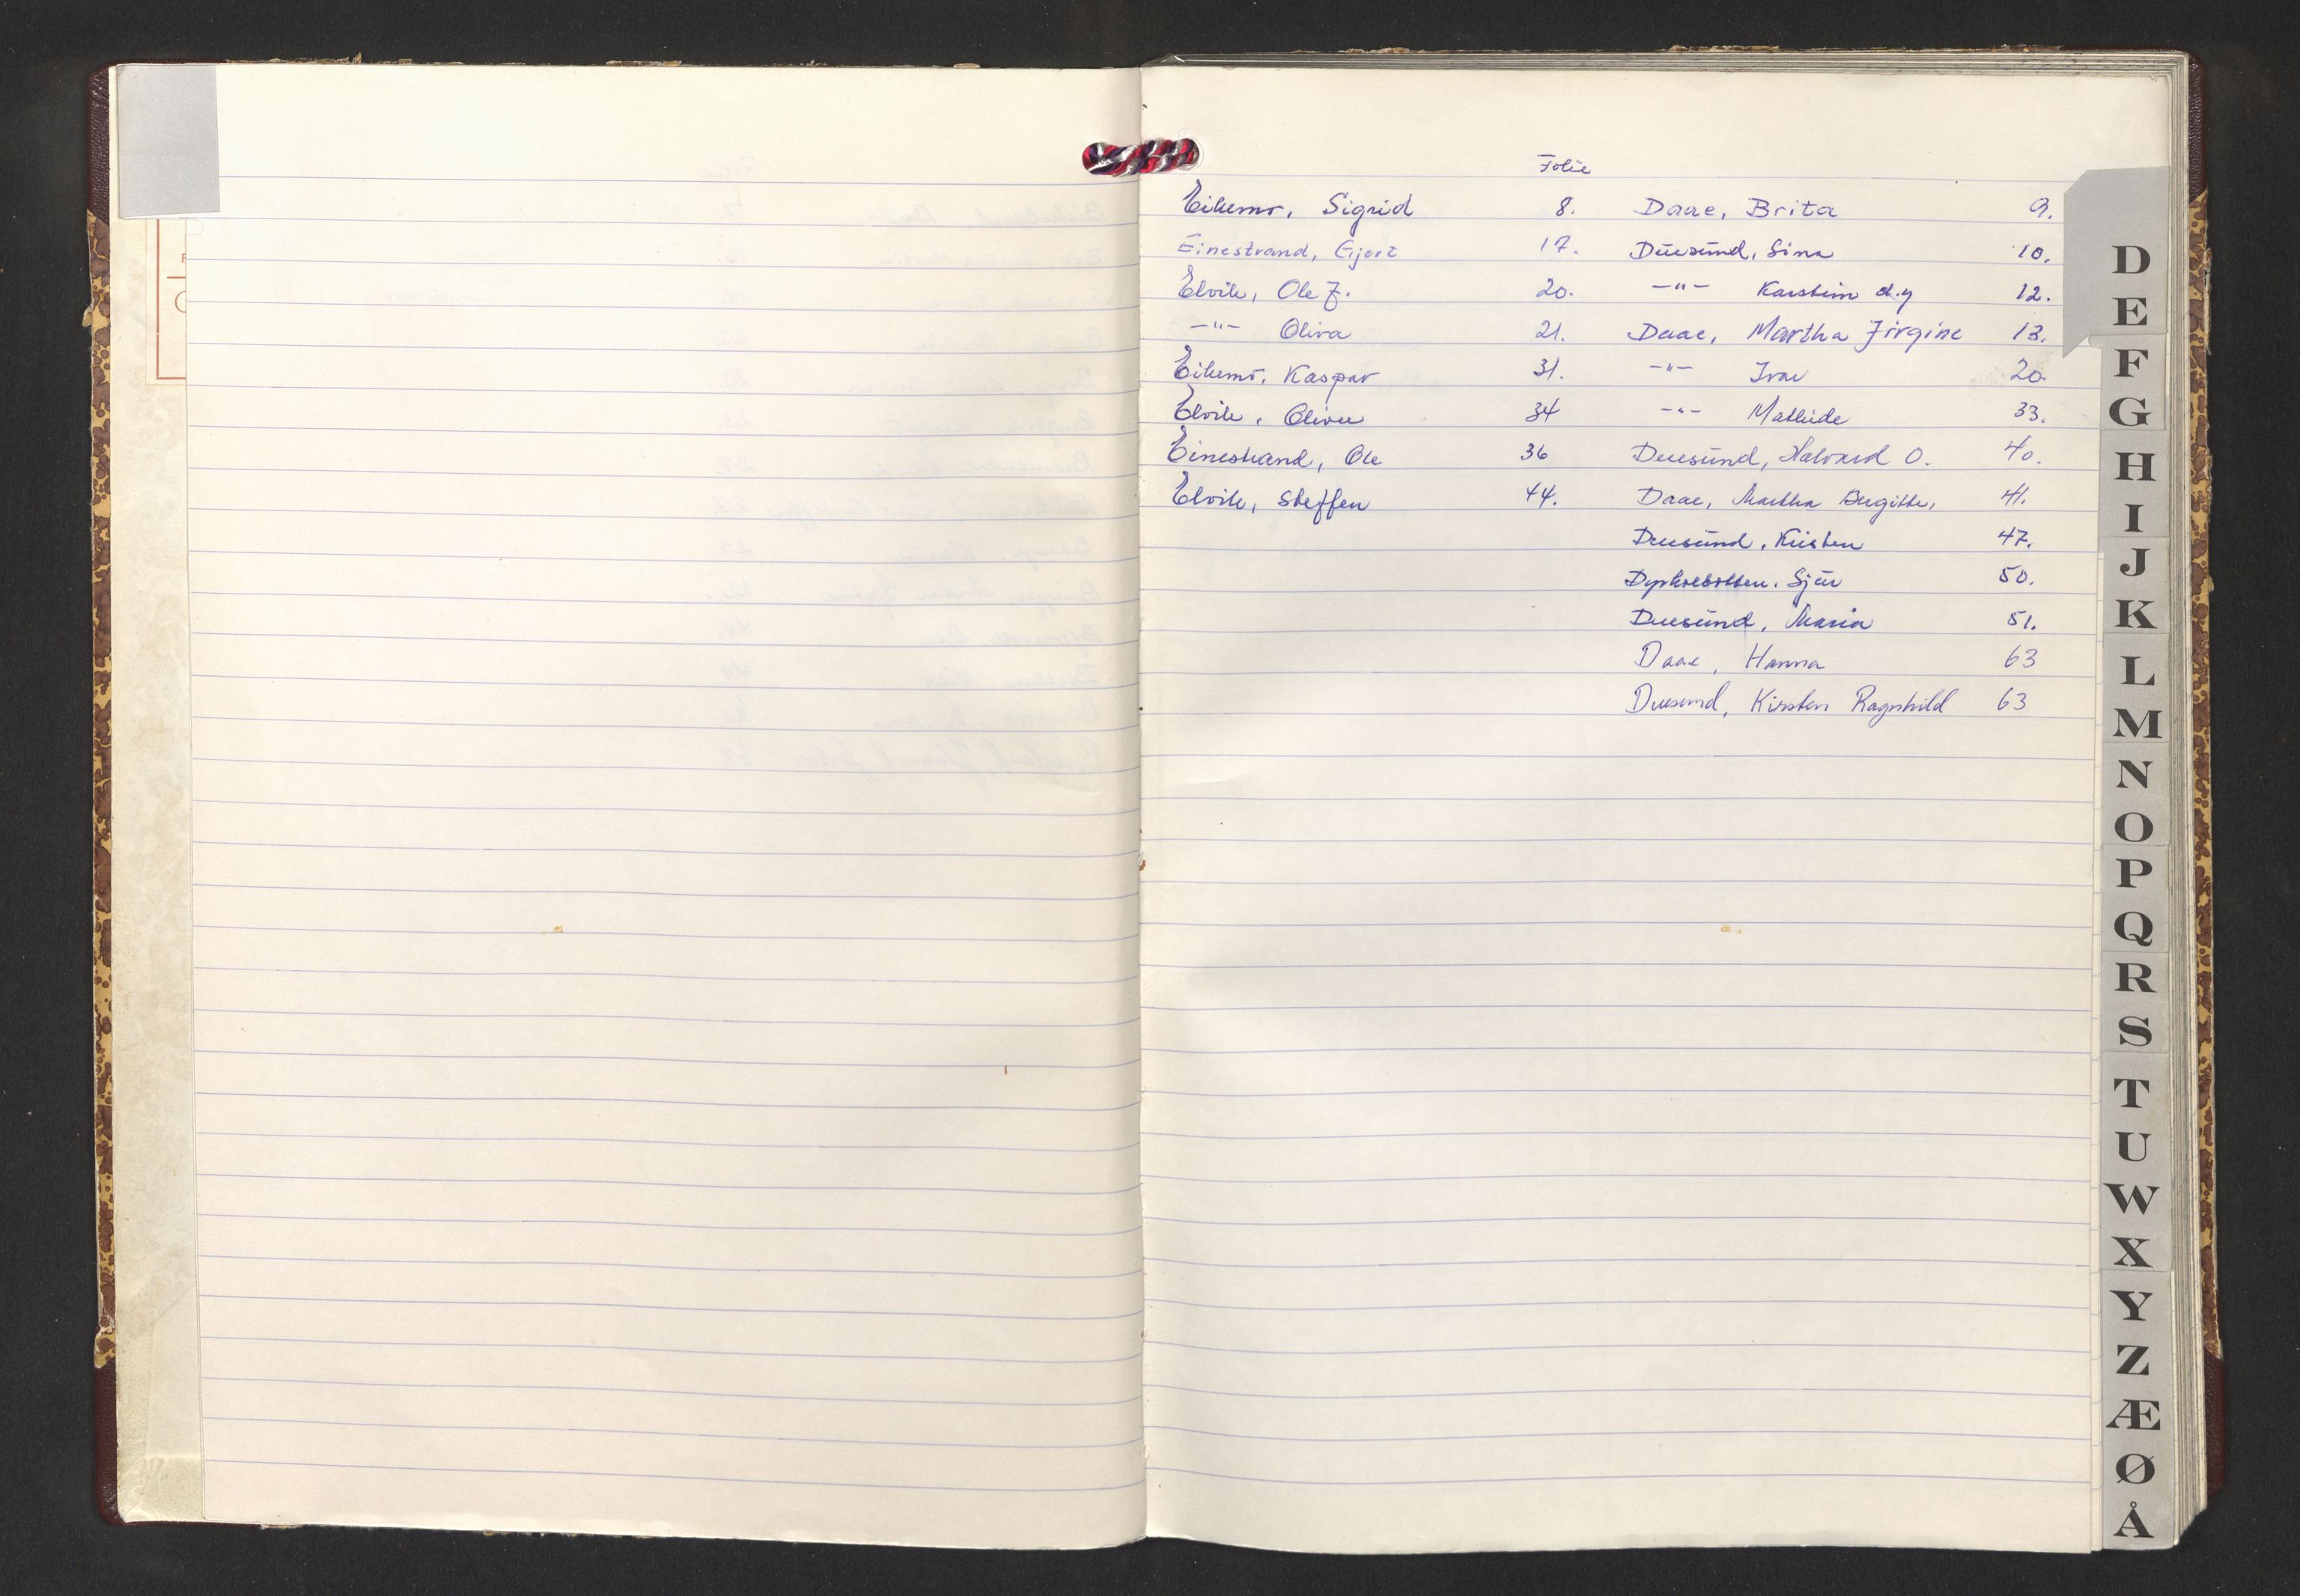 Folie
Eikemo, Sigrid 8. Daae, Brita 9.
Einestrand, Ejert 17. Duesund, Sina 10.
Elvik, Ole J. 20. -"- Karstein d.y 12.
-"- Oliva 21. Daae, Martha Jirgine 13.
Eikemo, Kaspar 31. -"- Ivar 20.
Elvik, Oliver 34 -"- Mathilde 33.
Einestrand, Ole 36 Duesund, Halvard O. 40.
Elvik, Steffen 44. Daae, Martha Birgitte, 41.
Duesund, Kristen 47.
Dyrkolbotten, Sjur 50.
Duesund, Maria 51.
Daae, Hanna 63
Duesund, Kirsten Ragnhild 63
D
E
F
G
H
I
J
K
L
M
N
O
P
Q
R
S
T
U
W
X
Y
Z
Æ
Ø
Å